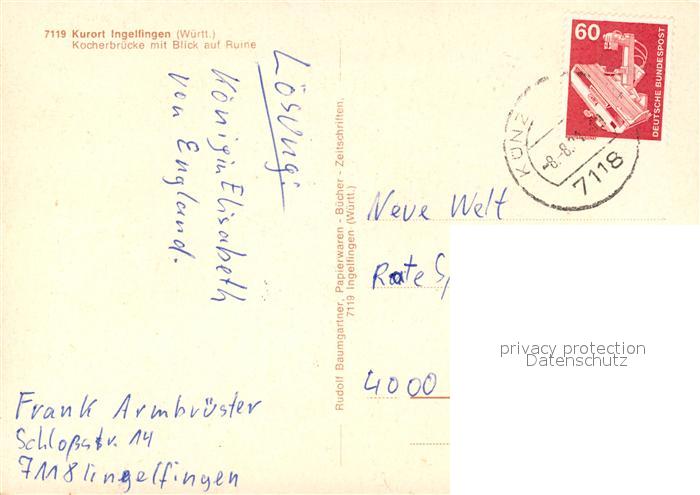 7119 Kurort Ingelfingen (Württ.)
Kocherbrücke mit Blick auf Ruine
Lösung:
Königin Elisabeth
von England.
Frank Armbrüster
Schloßstr. 14
7118 Ingelfingen
Rudolf Baumgartner, Papierwaren - Bücher - Zeitschriften,
7119 Ingelfingen (Württ.)
60
DEUTSCHE BUNDESPOST
KÜNZ
-8.-8.
7118
Neue Welt
Rate
4000
privacy protection
Datenschutz